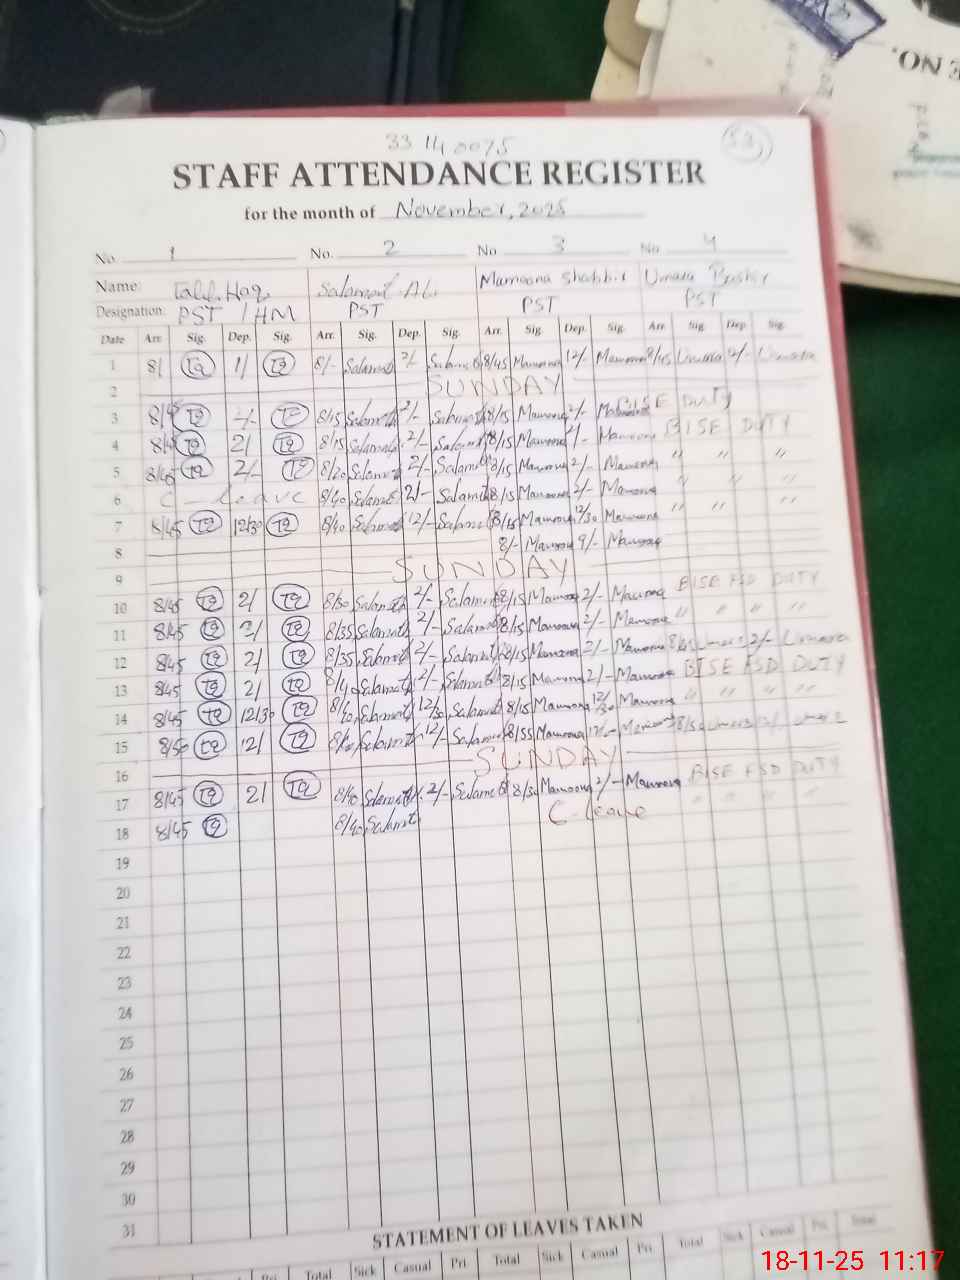 ON
NO.
33140075
53
STAFF ATTENDANCE REGISTER
for the month of November, 2025
No. 1 No. 2 No 3 No 4
Name: Salamat Ali Mamoona Shabbir Umara Bashir
Designation: PST / HM PST PST PST
Date Arr. Sig. Dep. Sig. Arr. Sig. Dep. Sig. Arr. Sig Dep. Sig. Arr. Sig. Dep Sig.
1 8/ TQ 1/ TQ 8/- Salamat 2/- Salamat 8/45 Mamoona 12/- Mamoona 8/45 Umara 2/- Umara
2 SUNDAY
3 8/45 TQ 2/- TQ 8/15 Salamat 2/- Salamat 8/15 Mamoona 2/- Mamoona BISE DUTY
4 8/45 TQ 2/ TQ 8/15 Salamat 2/- Salamat 8/15 Mamoona 2/- Mamoona BISE DUTY
5 8/45 TQ 2/- TQ 8/20 Salamat 2/- Salamat 8/15 Mamoona 2/- Mamoona " " "
6 C - leave 8/40 Salamat 2/- Salamat 8/15 Mamoona 2/- Mamoona " " "
7 8/45 TQ 12/30 TQ 8/40 Salamat 12/- Salamat 8/15 Mamoona 12/30 Mamoona " " "
8 8/- Mamoona 9/- Mamoona
9 SUNDAY
10 8/45 TQ 2/ TQ 8/30 Salamat 2/- Salamat 8/15 Mamoona 2/- Mamoona BISE FSD DUTY
11 8/45 TQ 2/ TQ 8/35 Salamat 2/- Salamat 8/15 Mamoona 2/- Mamoona " " " "
12 8/45 TQ 2/ TQ 8/35 Salamat 2/- Salamat 8/15 Mamoona 2/- Mamoona Umara 2/- Umara
13 8/45 TQ 2/ TQ 8/40 Salamat 2/- Salamat 8/15 Mamoona 2/- Mamoona BISE FSD DUTY
14 8/45 TQ 12/30 TQ 8/40 Salamat 12/30 Salamat 8/15 Mamoona 12/30 Mamoona " " " "
15 8/50 TQ 12/ TQ Salamat 12/- Salamat 8/55 Mamoona Mamoona 8/50 Umara Umara
16 SUNDAY
17 8/45 TQ 2/ TQ 8/40 Salamat 2/- Salamat 8/30 Mamoona 2/- Mamoona BISE FSD DUTY
18 8/45 TQ 8/40 Salamat C - leave " " " "
19
20
21
22
23
24
25
26
27
28
29
30
31
STATEMENT OF LEAVES TAKEN
Pri Total Sick Casual Pri Total Sick Casual Pri. Total Sick Casual Pri. Total
18-11-25 11:17